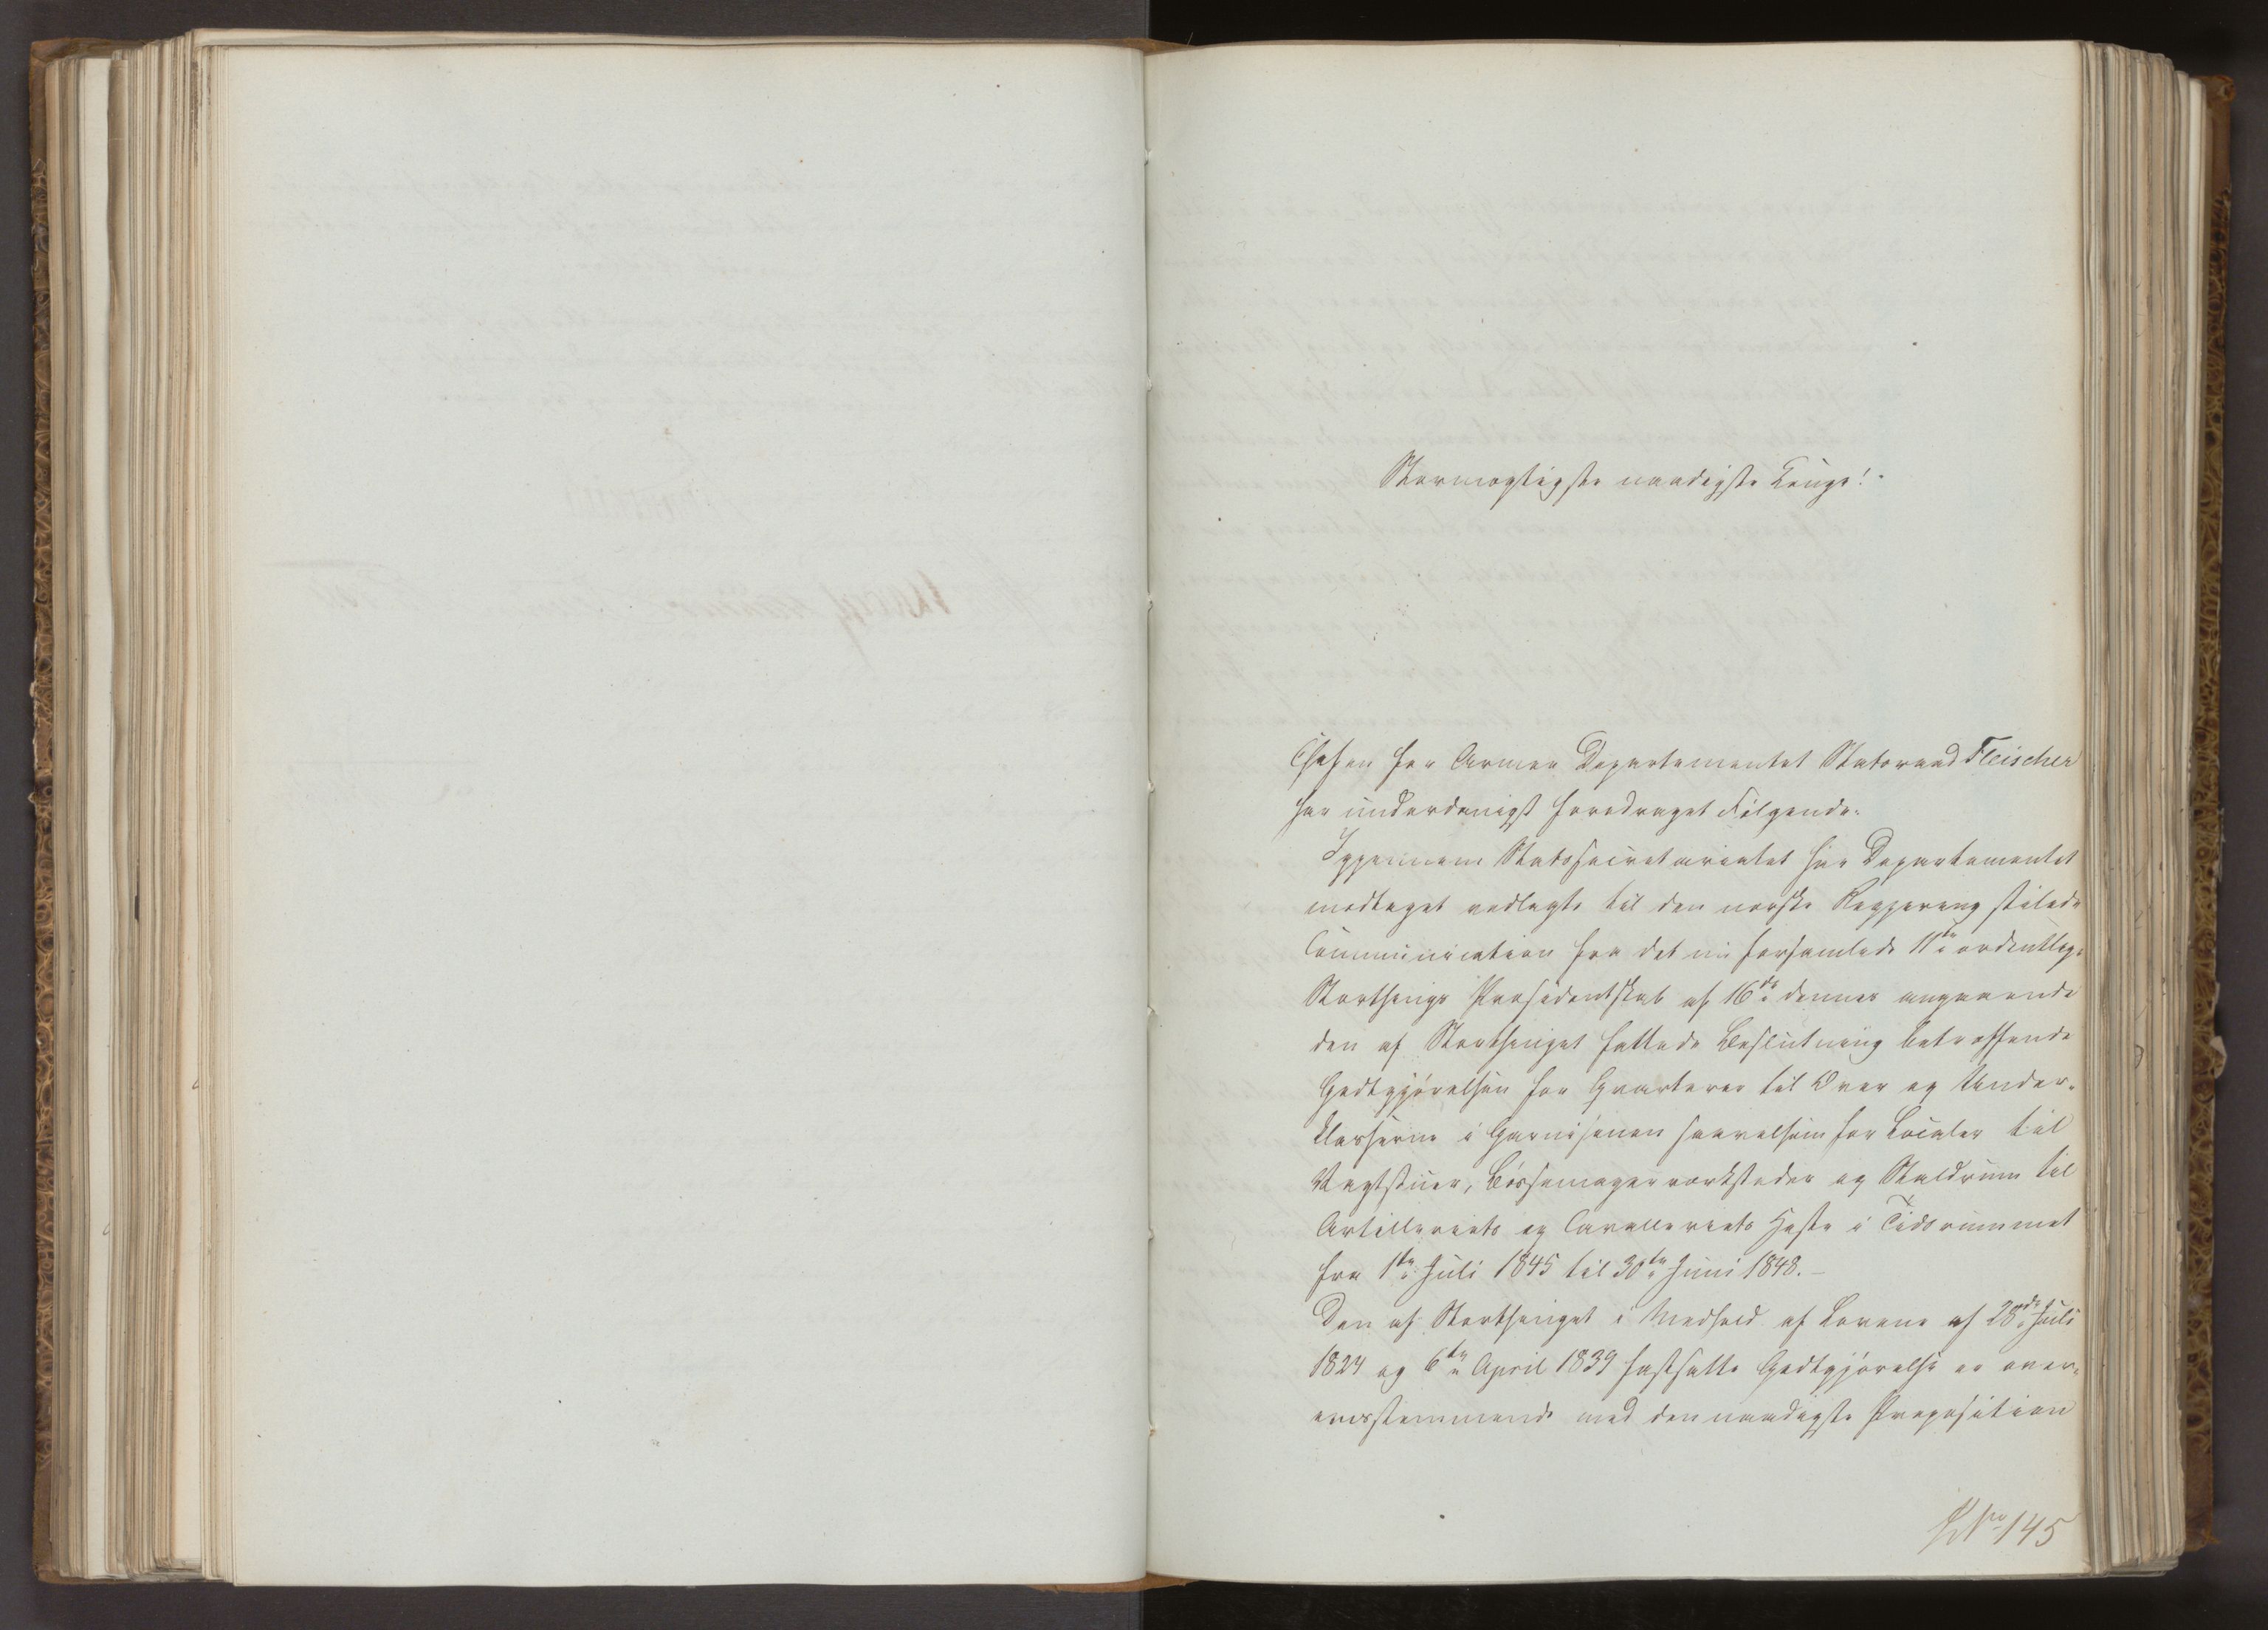 Stormægtigste naadigste Konge!
Chefen for Armee Departementet Statsraad Fleischer
har underdanigst foredraget Følgende:
Igjennem Statssecretariatet har Departementet
modtaget vedlagte til den norske Regjering stilede
Communication fra det nu forsamlede 11te ordentlige
Storthings Præsidentskab af 16de dennes angaaende
den af Storthinget fattede Beslutning betræffende
Godtgjørelsen for Qvarterer til Over og Under-
klasserne i Garnisonen saavelsom for Localer til
Vagtstuer, Bøssemagerværksteder og Staldrum til
Artilleriets og Cavalleriets Heste i Tidsrummet
fra 1ste Juli 1845 til 30te Juni 1848.-
Den af Storthinget i Medhold af Lovene af 28de Juli
1824 og 6te April 1839 fastsatte Godtgjørelse er over-
eensstemmende med den naadigste Proposition
No 145